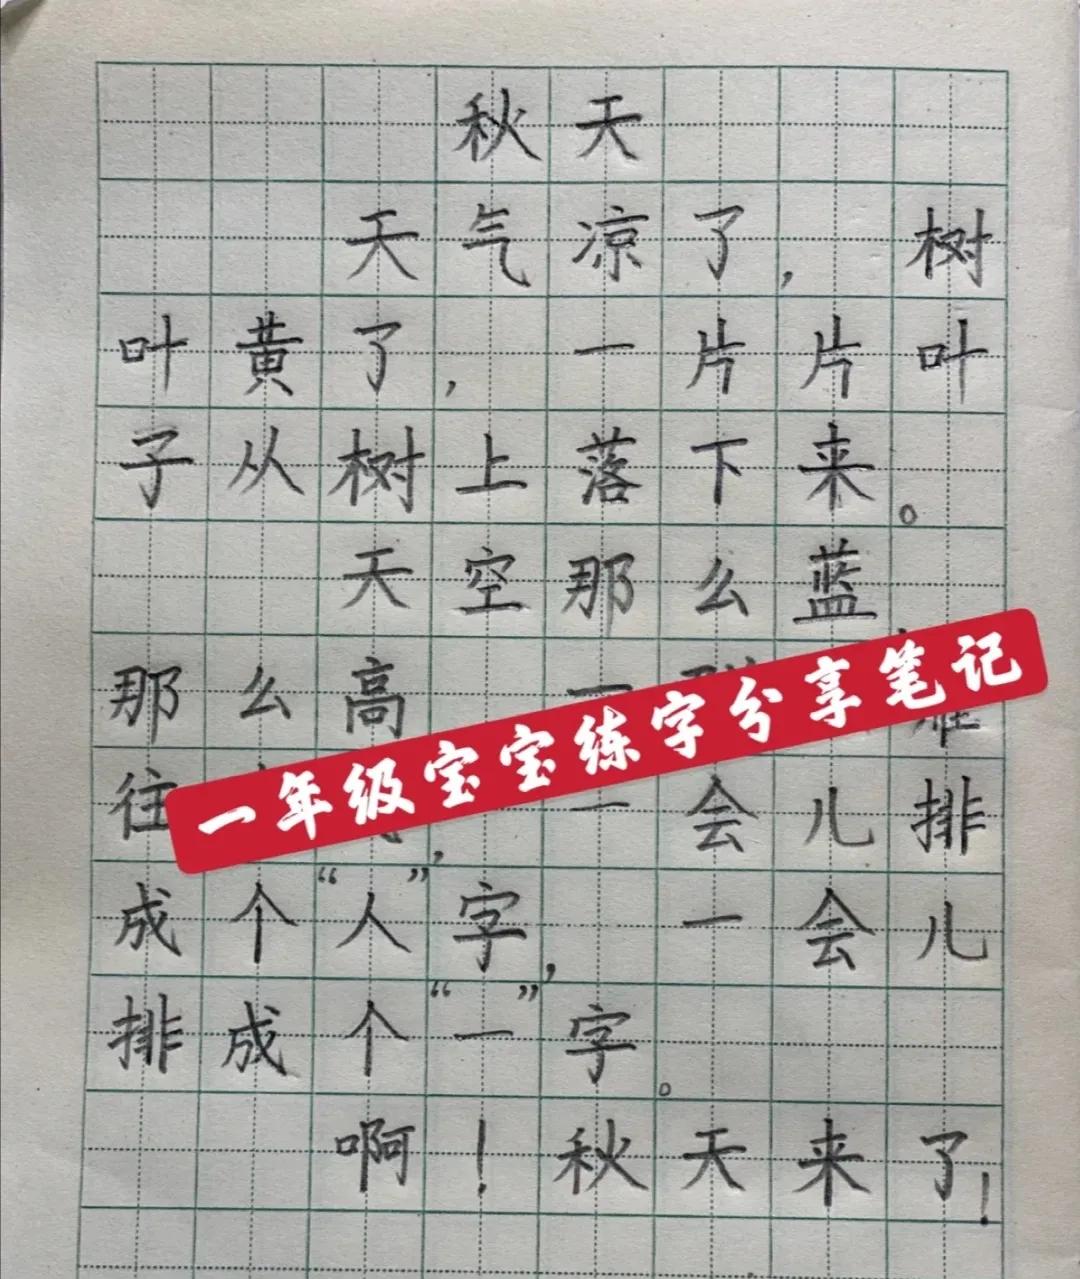 秋天
天气凉了，树
叶黄了，一片片叶
子从树上落下来。
天空那么蓝
那么高 一
往 一会儿排
成个“人”字，一会儿
排成个“一”字。
啊！秋天来了！
一年级宝宝练字分享笔记